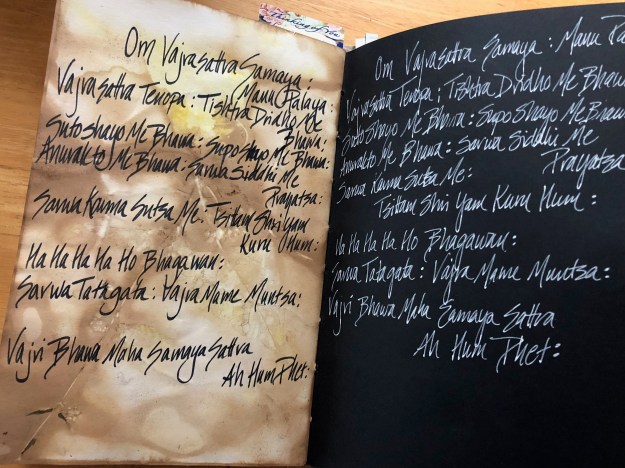 Thinking of You
Om Vajrasattva Samaya:
Manu Palaya:
Vajrasattva Tenopa: Tishtra Dridho Me
Bhawa:
Sutoshayo Me Bhawa: Suposhayo Me Bhawa:
Anurakto Me Bhawa: Sarwa Siddhi Me
Prayatsa:
Sarwa Karma Sutsa Me: Tsittam Shriyam
Kuru Hum:
Ha Ha Ha Ha Ho Bhagawan:
Sarwa Tatagata: Vajra Mame Muntsa:
Vajri Bhawa Maha Samaya Sattva
Ah Hum Phet:
Om Vajrasattva Samaya: Manu Pa
Vajrasattva Tenopa: Tishtra Dridho Me Bhawa
Sutoshayo Me Bhawa: Suposhayo Me Bhawa
Anurakto Me Bhawa: Sarwa Siddhi Me
Prayatsa
Sarwa Karma Sutsa Me:
Tsittam Shriyam Kuru Hum:
Ha Ha Ha Ha Ho Bhagawan:
Sarwa Tatagata: Vajra Mame Muntsa:
Vajri Bhawa Maha Samaya Sattva
Ah Hum Phet: